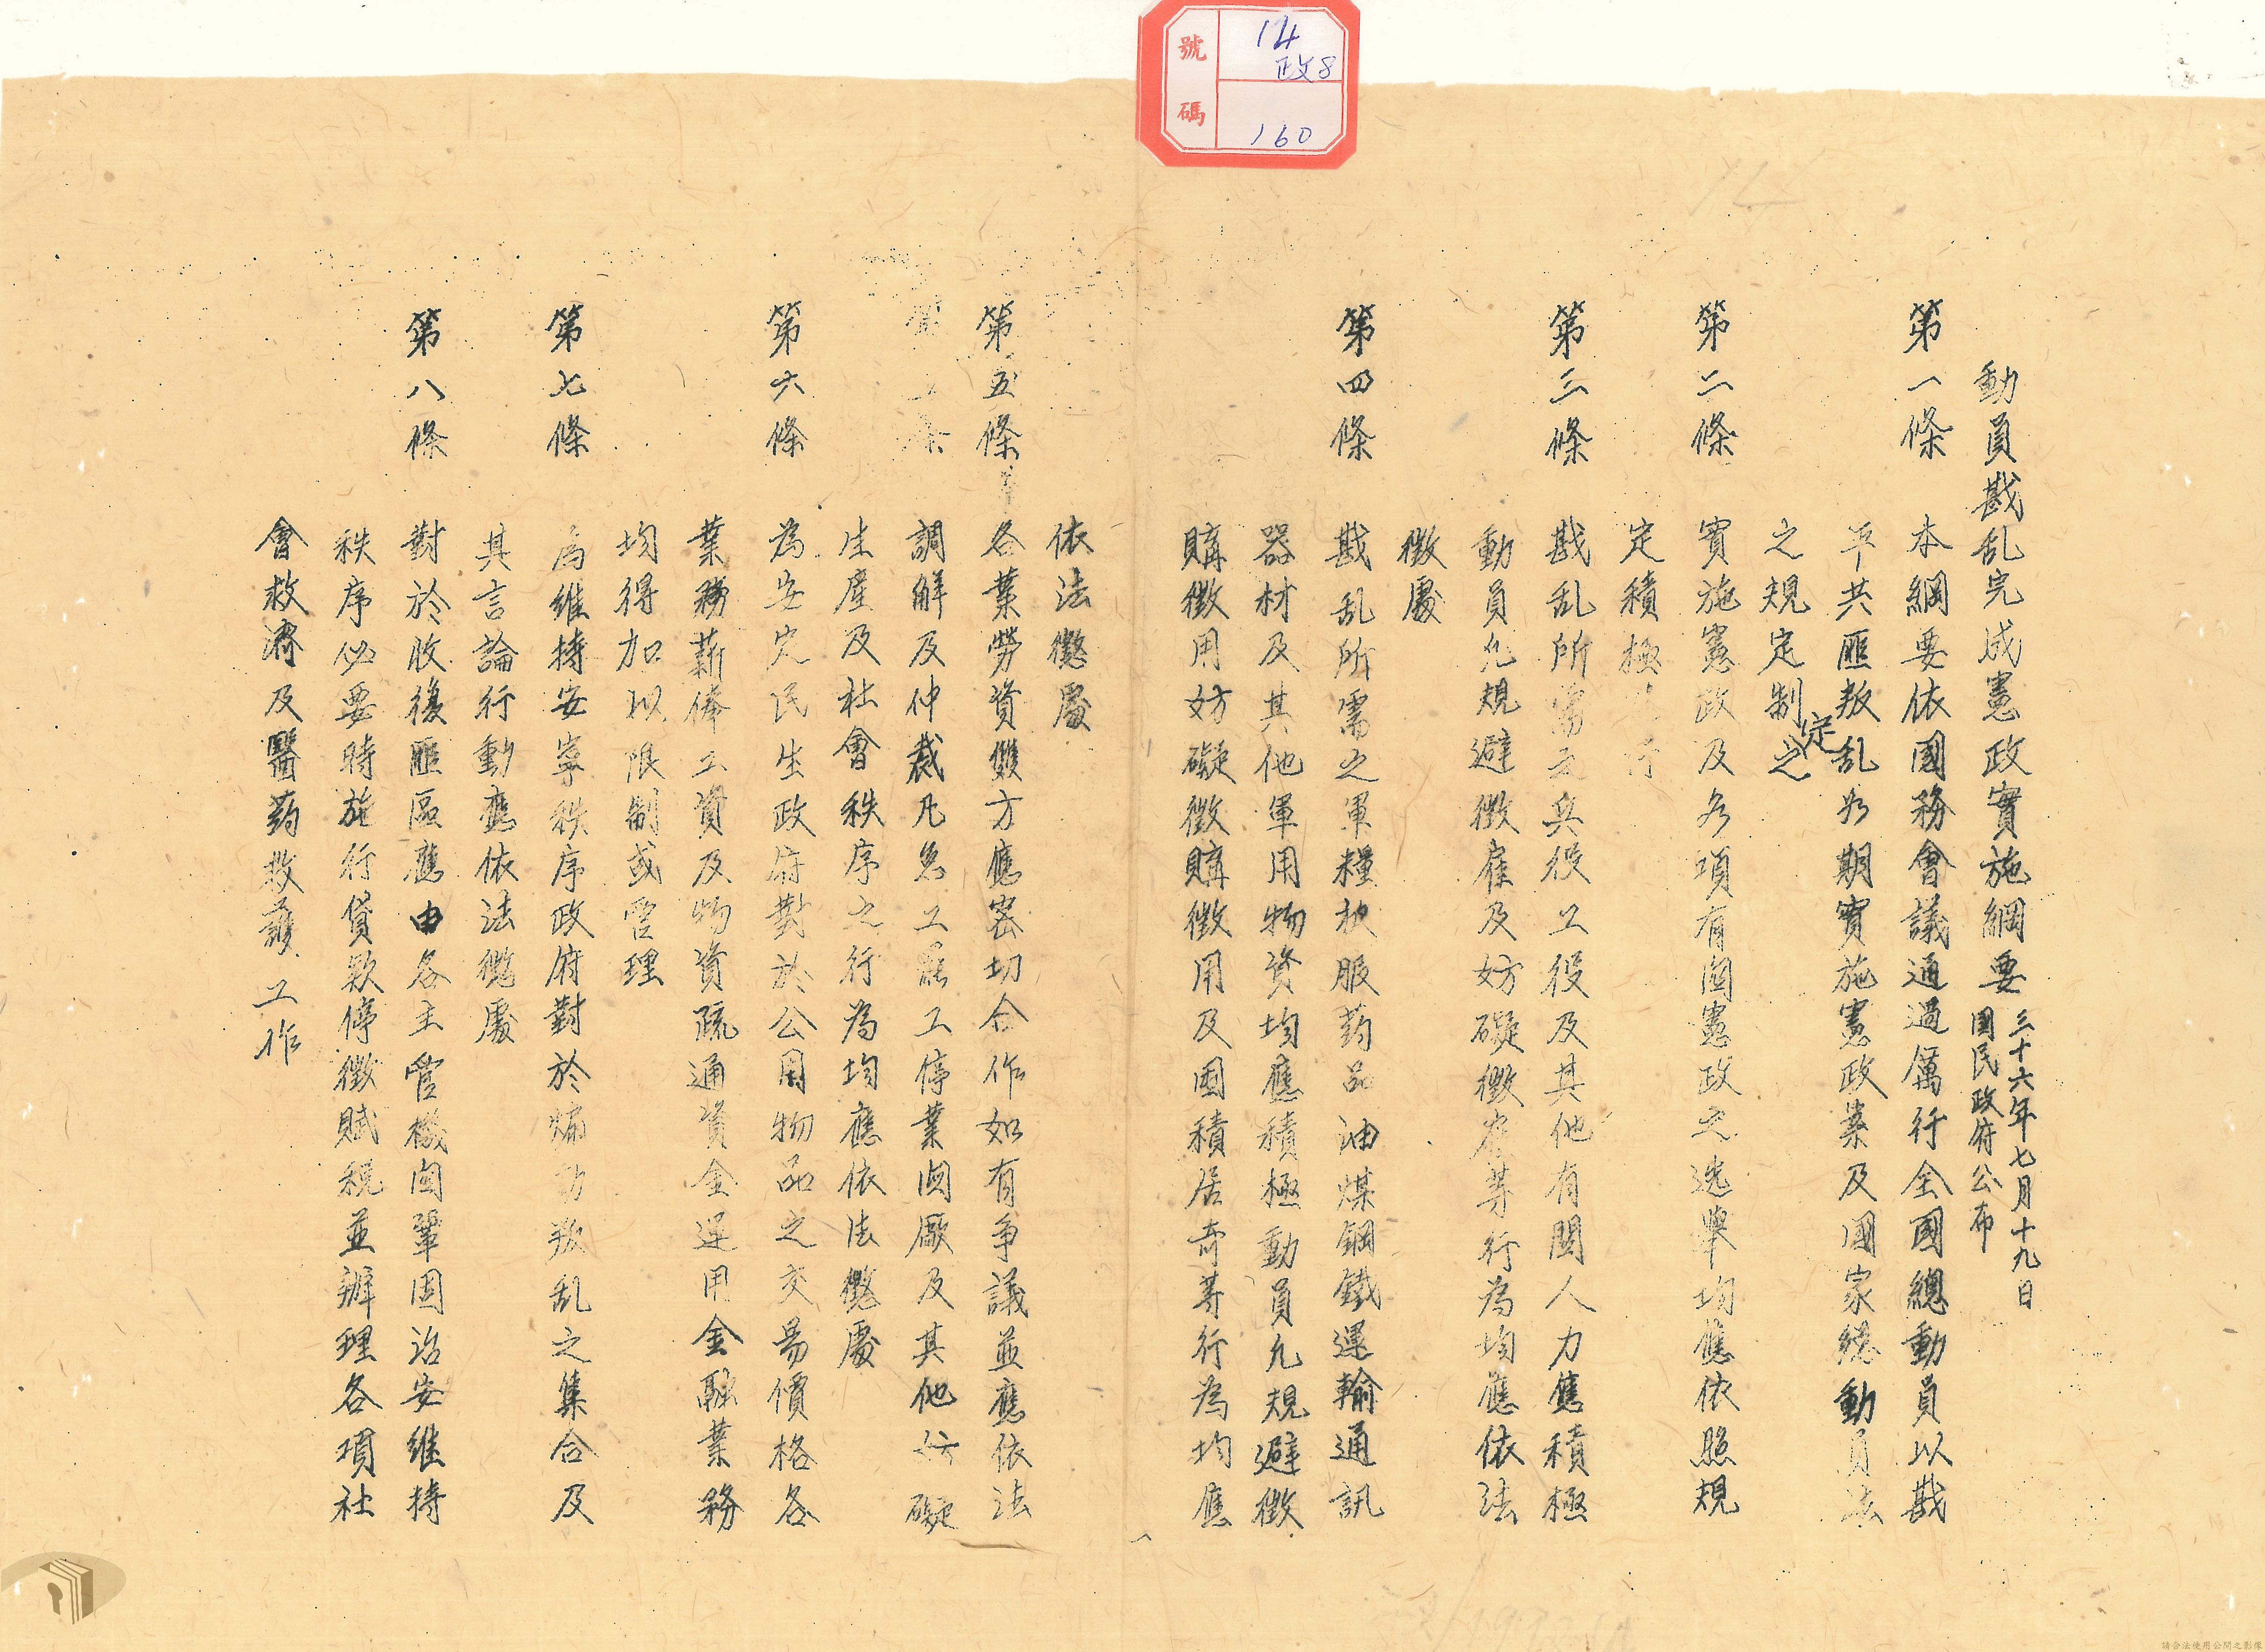 號碼
14
政8
160
動員戡乱完成憲政實施綱要
三十六年七月十九日
國民政府公布
第一條 本綱要依國務會議通過厲行全國總動員以戡
平共匪叛乱如期實施憲政案及國家總動員法
之規定制定之
第二條 實施憲政及各項有関憲政之选舉均應依照規
定積極 行
第三條 戡乱所需之兵役工役及其他有関人力應積極
動員凢規避徴雇及妨礙徴雇等行為均應依法
徴處
第四條 戡乱所需之軍糧被服药品油煤鋼鐵運輸通訊
器材及其他軍用物資均應積極動員凢規避徴
購徴用妨礙徴購徴用及囤積居奇等行為均應
依法懲處
第五條 各業勞資雙方應密切合作如有争議並應依法
調解及仲裁凡怠工罷工停業関廠及其他妨礙
生產及社會秩序之行為均應依法懲處
第六條 為安定民生政府對於公用物品之交易價格各
業務薪俸工資及物資疏通資金運用金融業務
均得加以限制或管理
第七條 為維持安寧秩序政府對於煽動叛乱之集合及
其言論行動應依法懲處
第八條 對於收復匪區應由各主管機関鞏固治安維持
秩序必要時施行貸款停徴賦税並辦理各項社
會救濟及醫药救護工作
請合法使用公開之影像